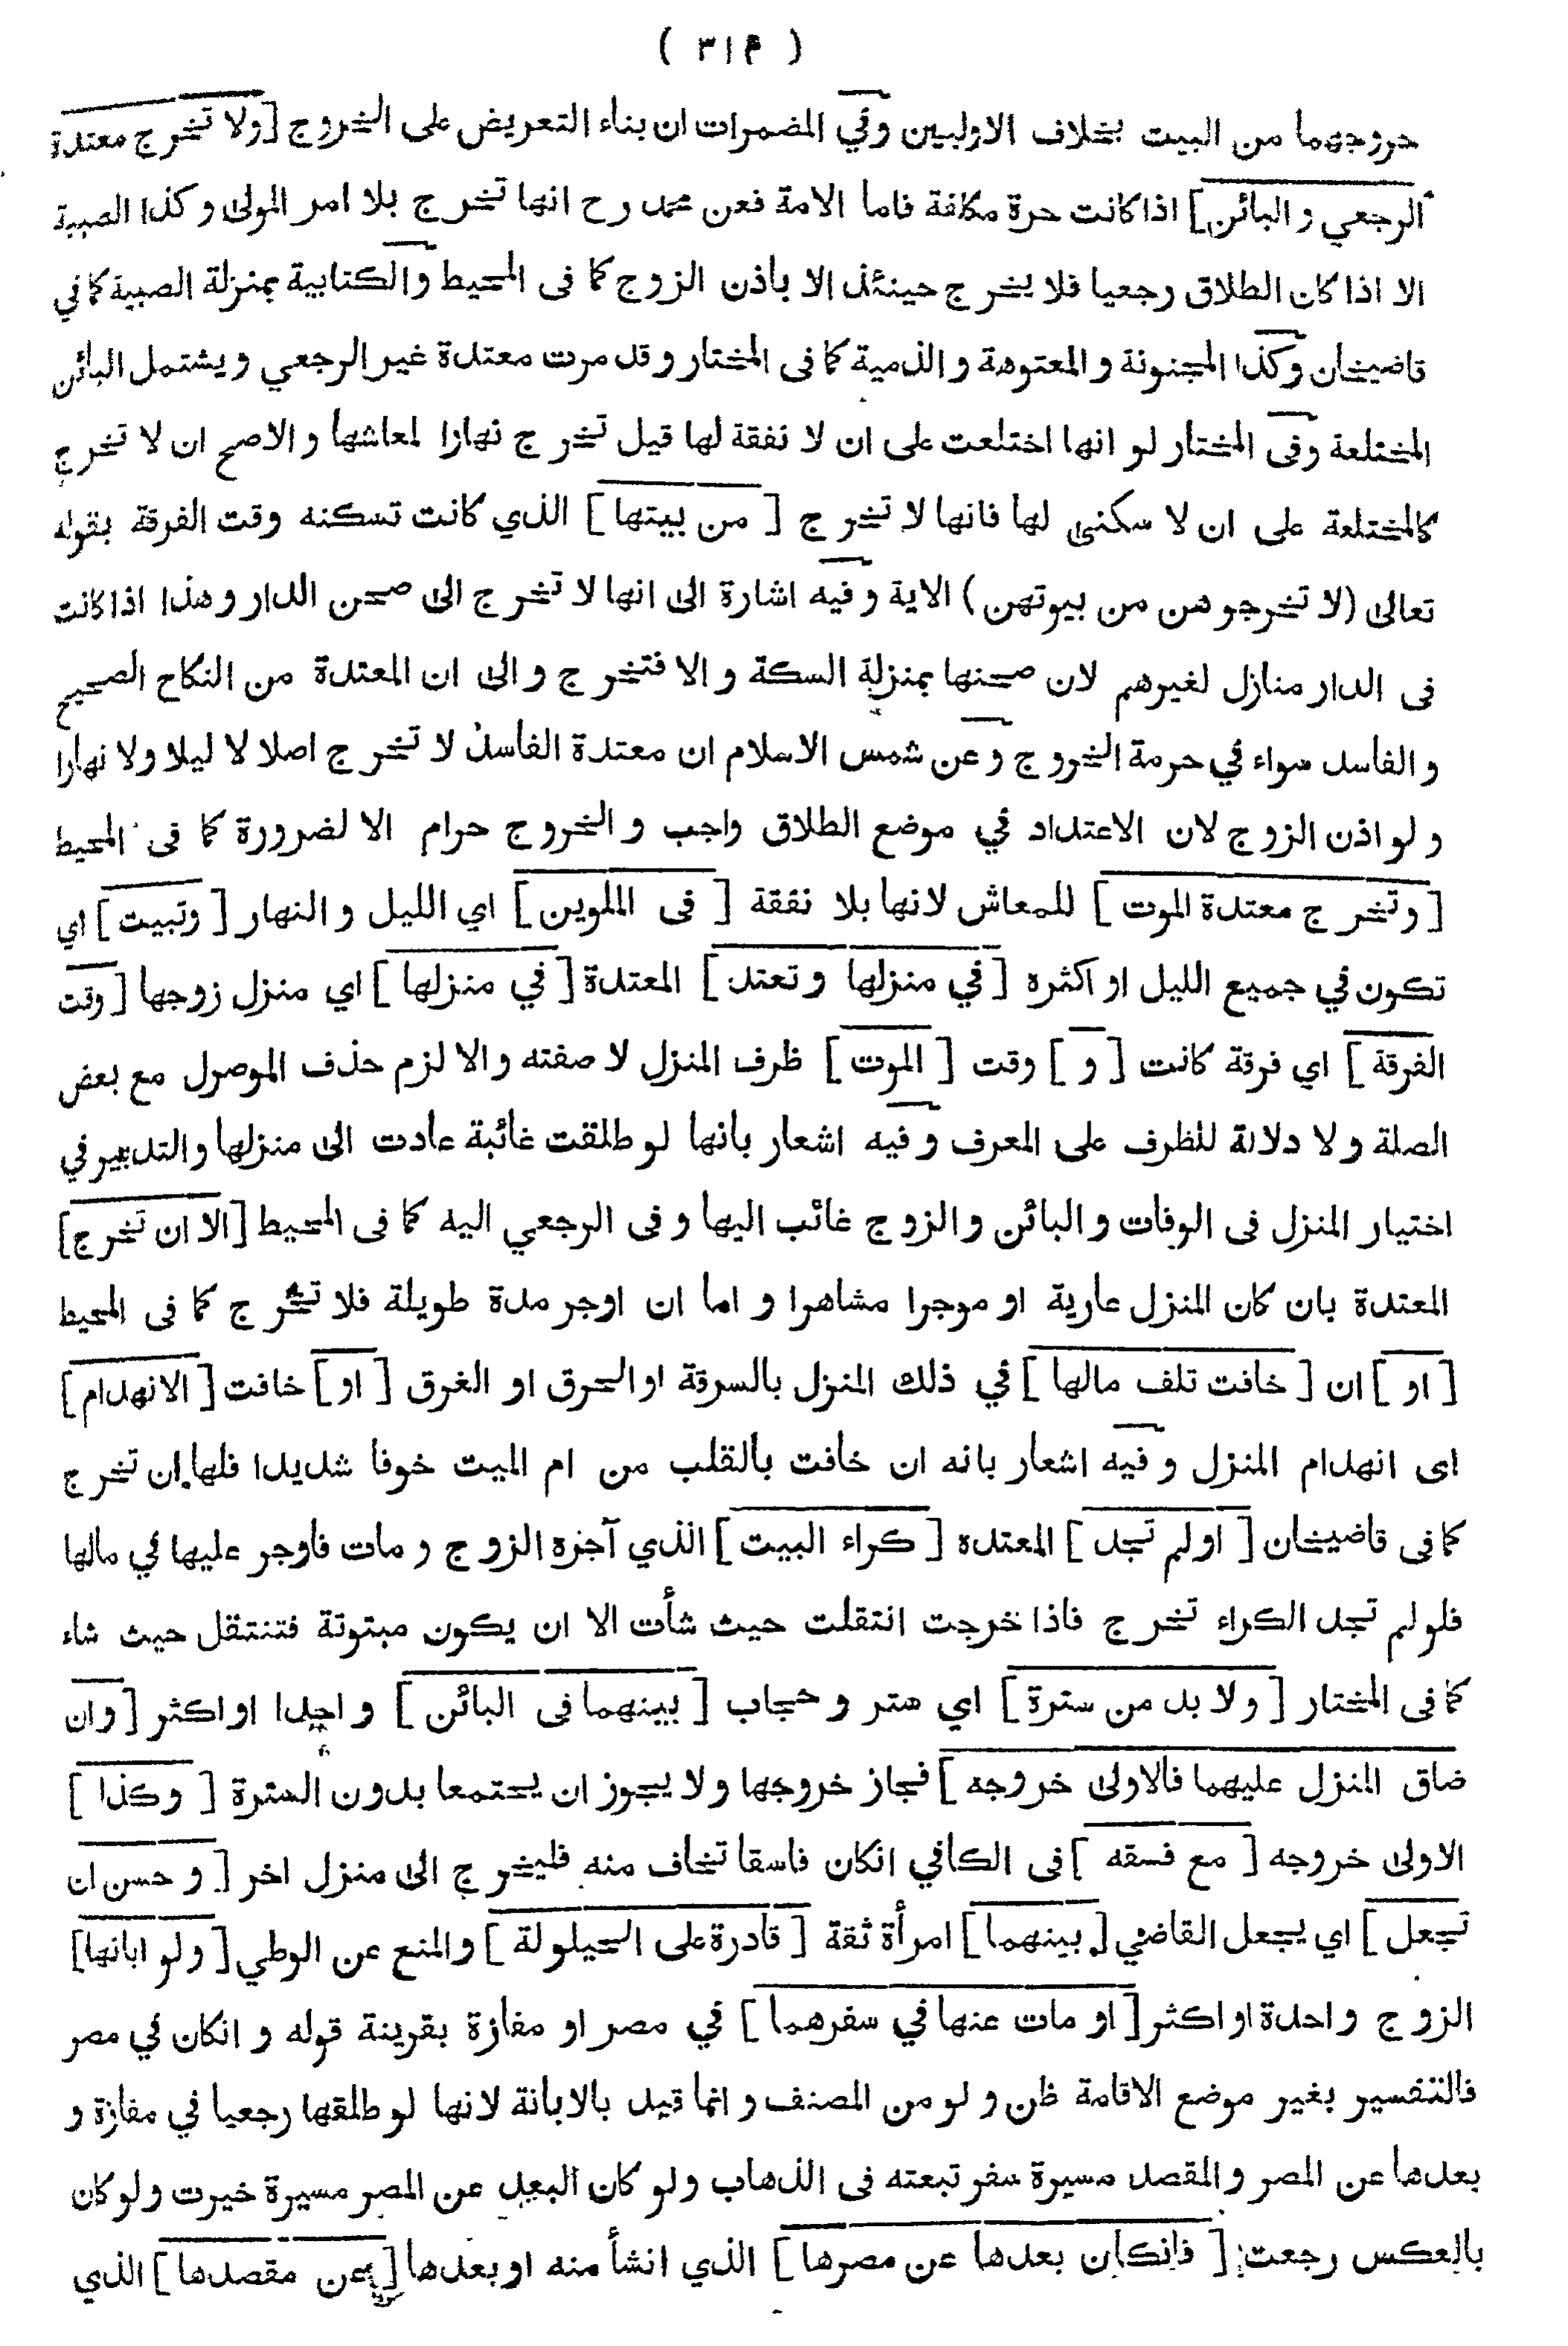 ( ٣١٤ )
خروجهما من البيت بخلاف الاوليين وفي المضمرات ان بناء التعريض على الخروج [ولا تخرج معتدة
الرجعي والبائن] اذا كانت حرة مكلفة فاما الامة فعن محمد رح انها تخرج بلا امر المولى وكذا الصبية
الا اذا كان الطلاق رجعيا فلا يخرج حينئذ الا باذن الزوج كما فى المحيط والكتابية بمنزلة الصبية كما في
قاضيخان وكذا المجنونة والمعتوهة والذمية كما فى المختار وقد مرت معتدة غير الرجعي ويشتمل البائن
المختلعة وفى المختار لو انها اختلعت على ان لا نفقة لها قيل تخرج نهارا لمعاشها والاصح ان لا تخرج
كالمختلعة على ان لا سكنى لها فانها لا تخرج [ من بيتها ] الذي كانت تسكنه وقت الفرقة بقوله
تعالى (لا تخرجوهن من بيوتهن) الاية وفيه اشارة الى انها لا تخرج الى صحن الدار وهذا اذا كانت
فى الدار منازل لغيرهم لان صحنها بمنزلة السكة والا فتخرج والى ان المعتدة من النكاح الصحيح
والفاسد سواء في حرمة الخروج وعن شمس الاسلام ان معتدة الفاسد لا تخرج اصلا لا ليلا ولا نهارا
ولو اذن الزوج لان الاعتداد في موضع الطلاق واجب والخروج حرام الا لضرورة كما فى المحيط
[وتخرج معتدة الموت ] للمعاش لانها بلا نفقة [ فى الملوين] اي الليل والنهار [ وتبيت ] اي
تكون في جميع الليل او اكثره [في منزلها وتعتد ] المعتدة [في منزلها ] اي منزل زوجها [وقت
الفرقة ] اي فرقة كانت [ و ] وقت [ الموت ] ظرف المنزل لا صفته والا لزم حذف الموصول مع بعض
الصلة ولا دلالة للظرف على المعرف وفيه اشعار بانها لو طلقت غائبة عادت الى منزلها والتدبير في
اختيار المنزل فى الوفات والبائن والزوج غائب اليها وفى الرجعي اليه كما فى المحيط [الا ان تخرج]
المعتدة بان كان المنزل عارية او موجرا مشاهرا واما ان اوجر مدة طويلة فلا تخرج كما فى المحيط
[ او ] ان [ خافت تلف مالها ] في ذلك المنزل بالسرقة او الحرق او الغرق [ او ] خافت [ الانهدام]
اى انهدام المنزل وفيه اشعار بانه ان خافت بالقلب من ام الميت خوفا شديدا فلها ان تخرج
كما فى قاضيخان [ او لم تجد ] المعتدة [ كراء البيت ] الذي آجره الزوج ومات فاوجر عليها في مالها
فلو لم تجد الكراء تخرج فاذا خرجت انتقلت حيث شأت الا ان يكون مبتوتة فتنتقل حيث شاء
كما فى المختار [ ولا بد من سترة ] اي ستر وحجاب [ بينهما فى البائن ] واحدا او اكثر [ وان
ضاق المنزل عليهما فالاولى خروجه ] فجاز خروجها ولا يجوز ان يجتمعا بدون السترة [ وكذا ]
الاولى خروجه [ مع فسقه ] فى الكافي انكان فاسقا تخاف منه فليخرج الى منزل اخر [ وحسن ان
تجعل ] اي يجعل القاضي [بينهما ] امرأة ثقة [ قادرة على الحيلولة ] والمنع عن الوطي [ ولو ابانها]
الزوج واحدة او اكثر [ او مات عنها في سفرهما ] في مصر او مفازة بقرينة قوله وانكان في مصر
فالتفسير بغير موضع الاقامة ظن ولو من المصنف وانما قيد بالابانة لانها لو طلقها رجعيا في مفازة و
بعدها عن المصر والمقصد مسيرة سفر تبعته فى الذهاب ولو كان البعد عن المصر مسيرة خيرت ولو كان
بالعكس رجعت [ فانكان بعدها عن مصرها ] الذي انشأ منه او بعدها [عن مقصدها ] الذي